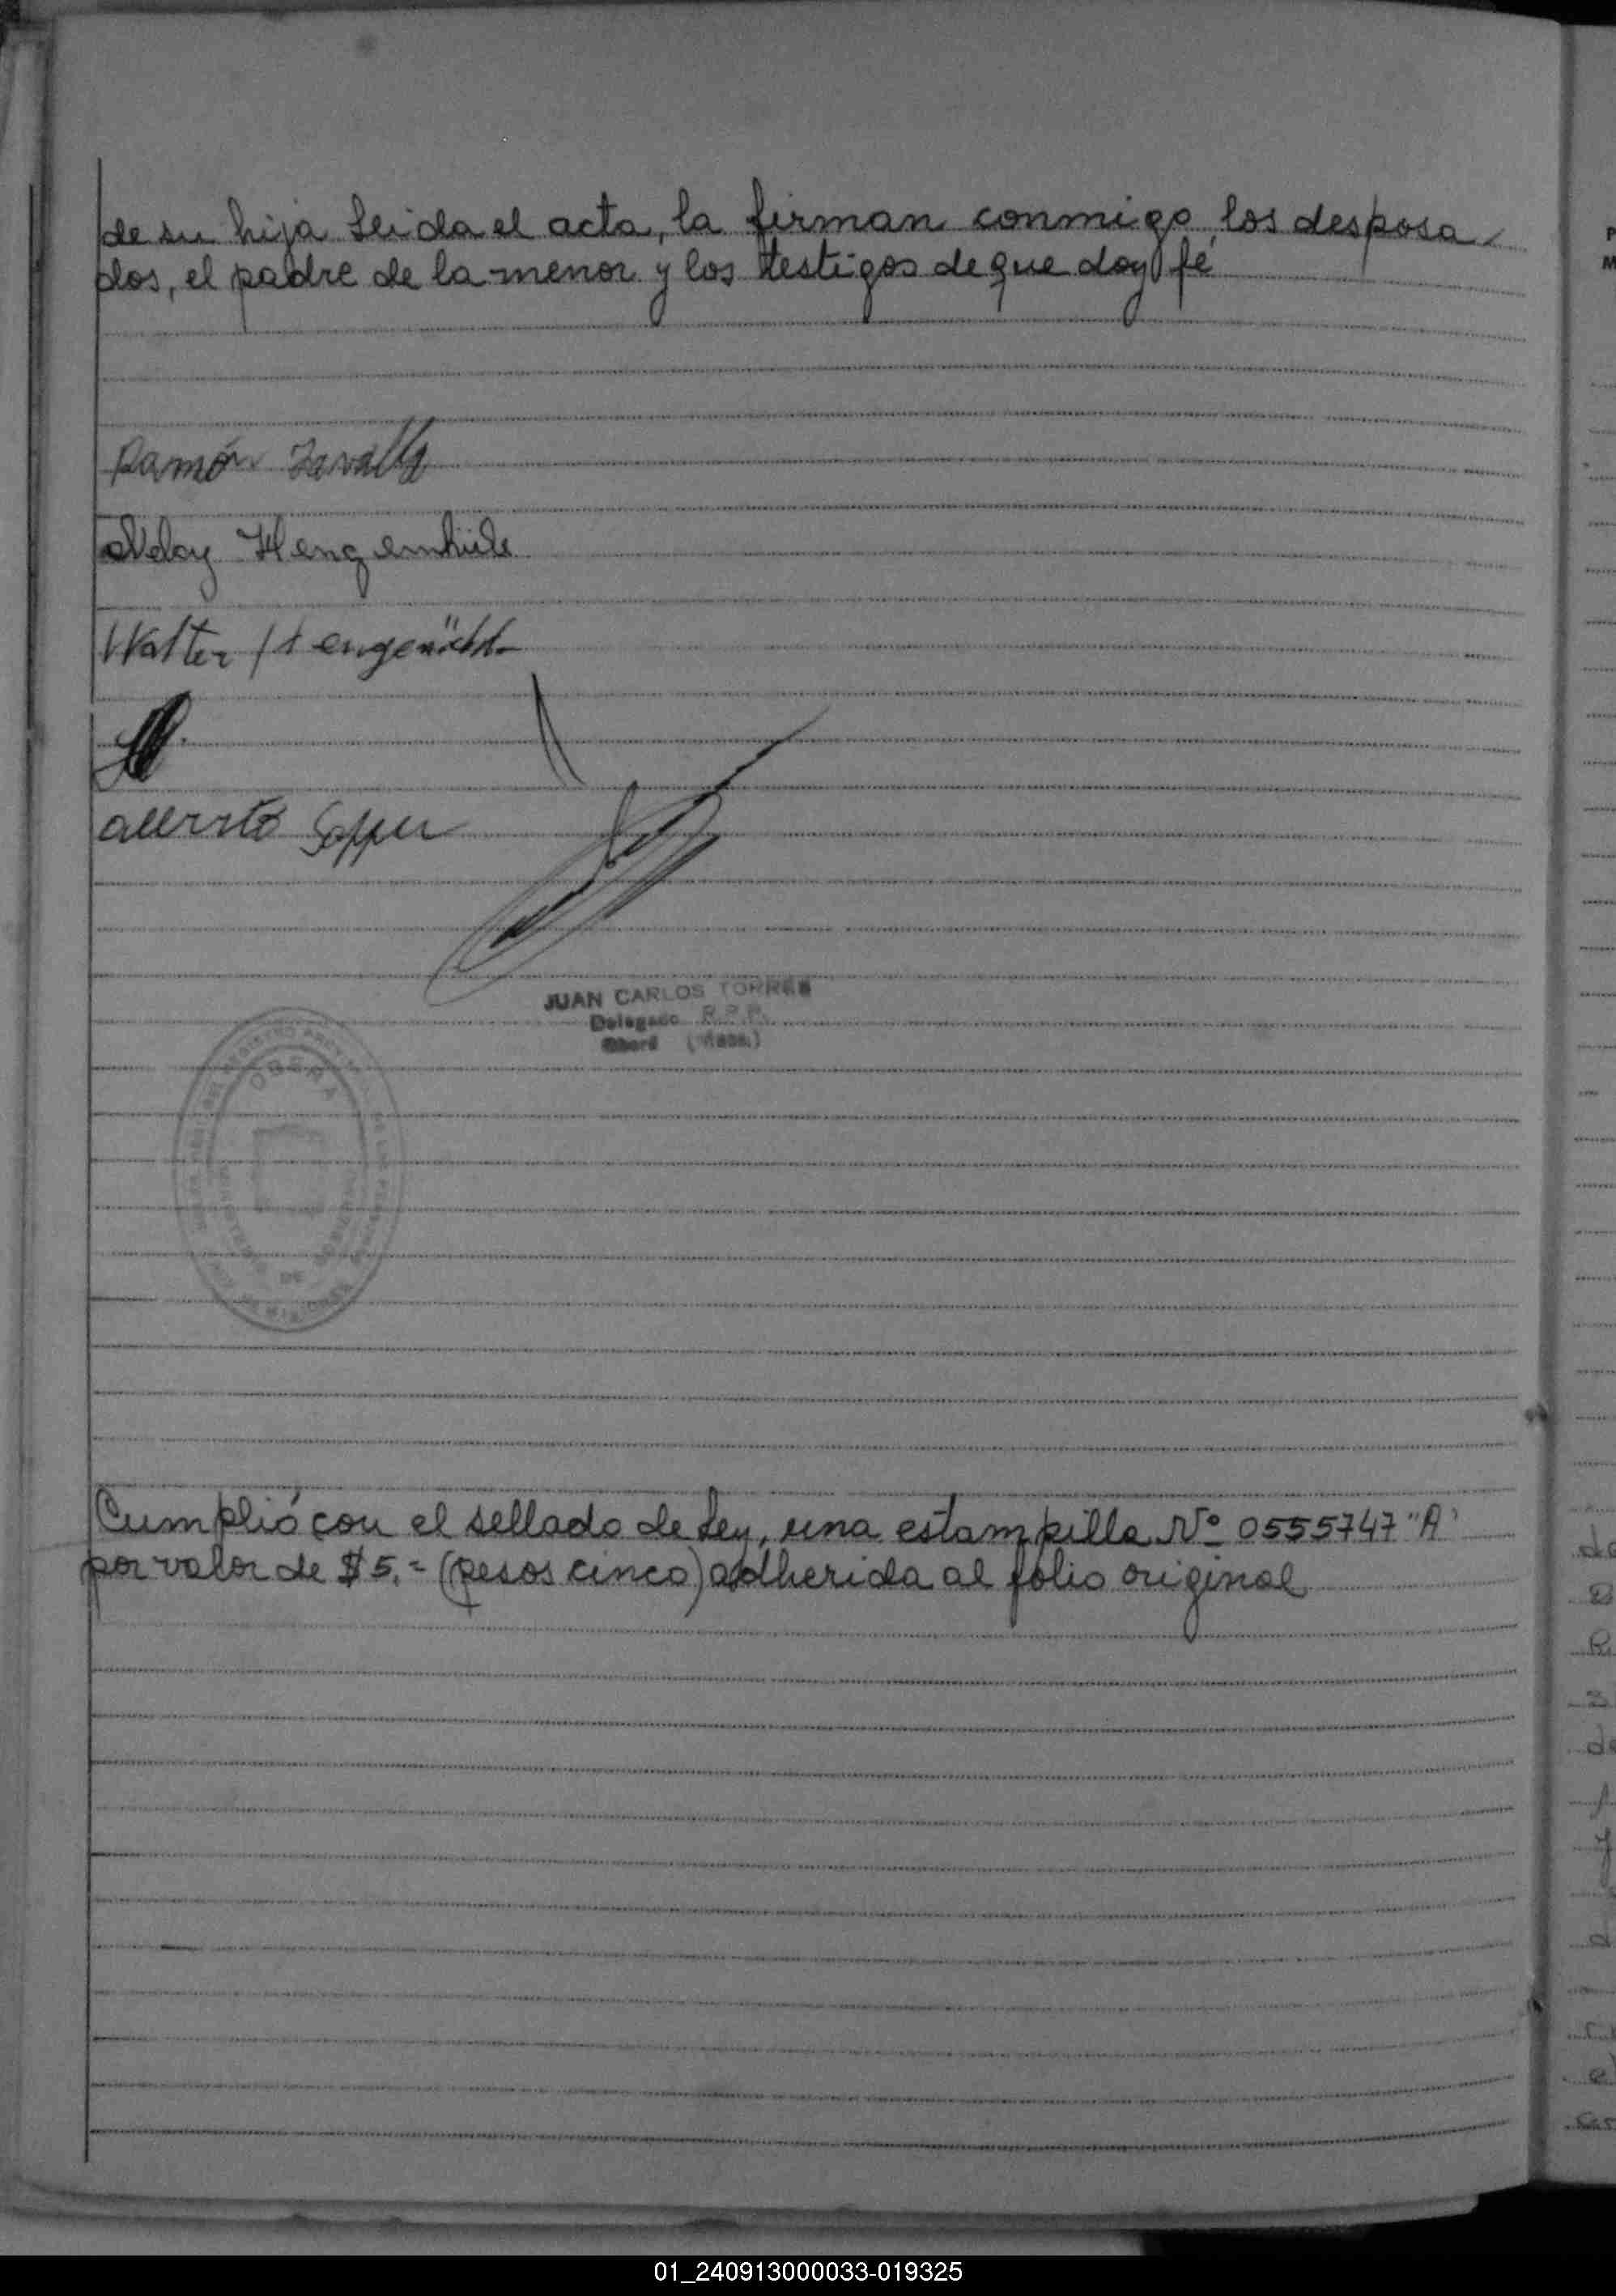 de su hija Leida el acta, la firman conmigo los desposa
dos, el padre de la menor y los testigos de que doy fé
Ramón
Walter
JUAN CARLOS TORRES
Delegado R.P.P.
Oberá (Mnes.)
OBERA
DE
Cumplió con el sellado de Ley, una estampilla Nº 0555747 "A"
por valor de $5.= (pesos cinco) adherida al folio original
01_240913000033-019325